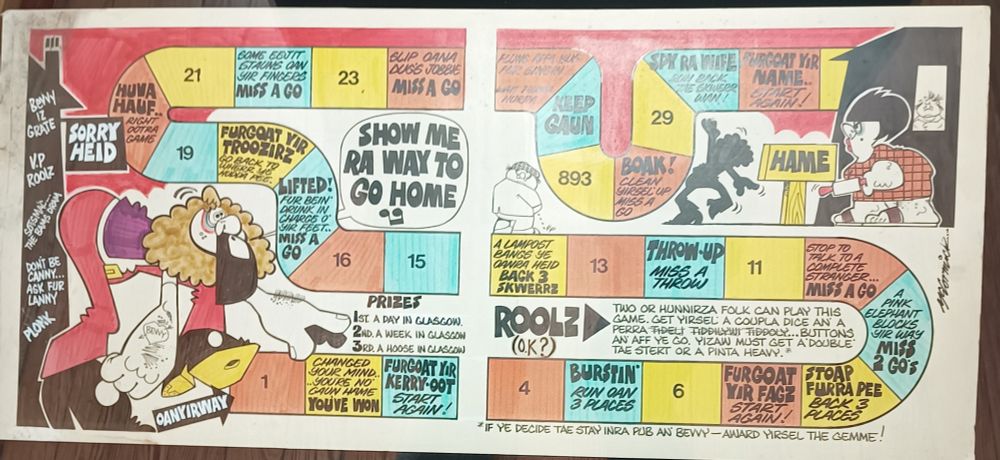 BEVVY
IZ
GRATE
V.P.
ROOLZ
DON'T BE
CANNY...
ASK FUR
LANNY
PLONK
HUVA
HAUF..
RIGHT
OOTRA
GAME
SORRY
HEID
21
SOME EEJIT
STAUNS OAN
YIR FINGERS
MISS A GO
23
SLIP OANA
DUGS JOBBIE
MISS A GO
19
FURGOAT YIR
TROOZIRZ
GO BACK TO
LIFTED!
FUR BEIN'
DRUNK IN
CHARGE O'
YIR FEET..
MISS A
GO
16
15
SHOW ME
RA WAY TO
GO HOME
PRIZES
1ST. A DAY IN GLASGOW.
2ND. A WEEK IN GLASGOW
3RD. A HOOSE IN GLASGOW
BEVVY
OANYIRWAY
1
CHANGED
YOUR MIND..
..YOU'RE NO'
GAUN HAME
YOU'VE WON
FURGOAT YIR
KERRY-OOT
START
AGAIN!
KEEP
GAUN
893
BOAK!
CLEAN
YIRSEL' UP
MISS A
GO
29
SPY RA WIFE
RUN BACK
FURGOAT YIR
NAME..
START
AGAIN!
HAME
A LAMPOST
BANGS YE
OANRA HEID
BACK 3
SKWERRZ
13
THROW-UP
MISS A
THROW
11
STOP TO
TALK TO A
COMPLETE
STRANGER...
MISS A GO
A
PINK
ELEPHANT
BLOCKS
YIR WAY
MISS
2 GO'S
ROOLZ
(O.K?)
TWO OR HUNNIRZA FOLK CAN PLAY THIS
GAME. GET YIRSEL A COUPLA DICE AN A
PERRA TIDELI TIDDLYWI TIDDOLY...BUTTONS
AN' AFF YE GO. YIZAW MUST GET A'DOUBLE'
TAE STERT OR A PINTA HEAVY.*
4
BURSTIN'
RUN OAN
3 PLACES
6
FURGOAT
YIR FAGZ
START
AGAIN!
STOAP
FURRA PEE
BACK 3
PLACES
*IF YE DECIDE TAE STAY INRA PUB AN' BEVVY — AWARD YIRSEL THE GEMME!